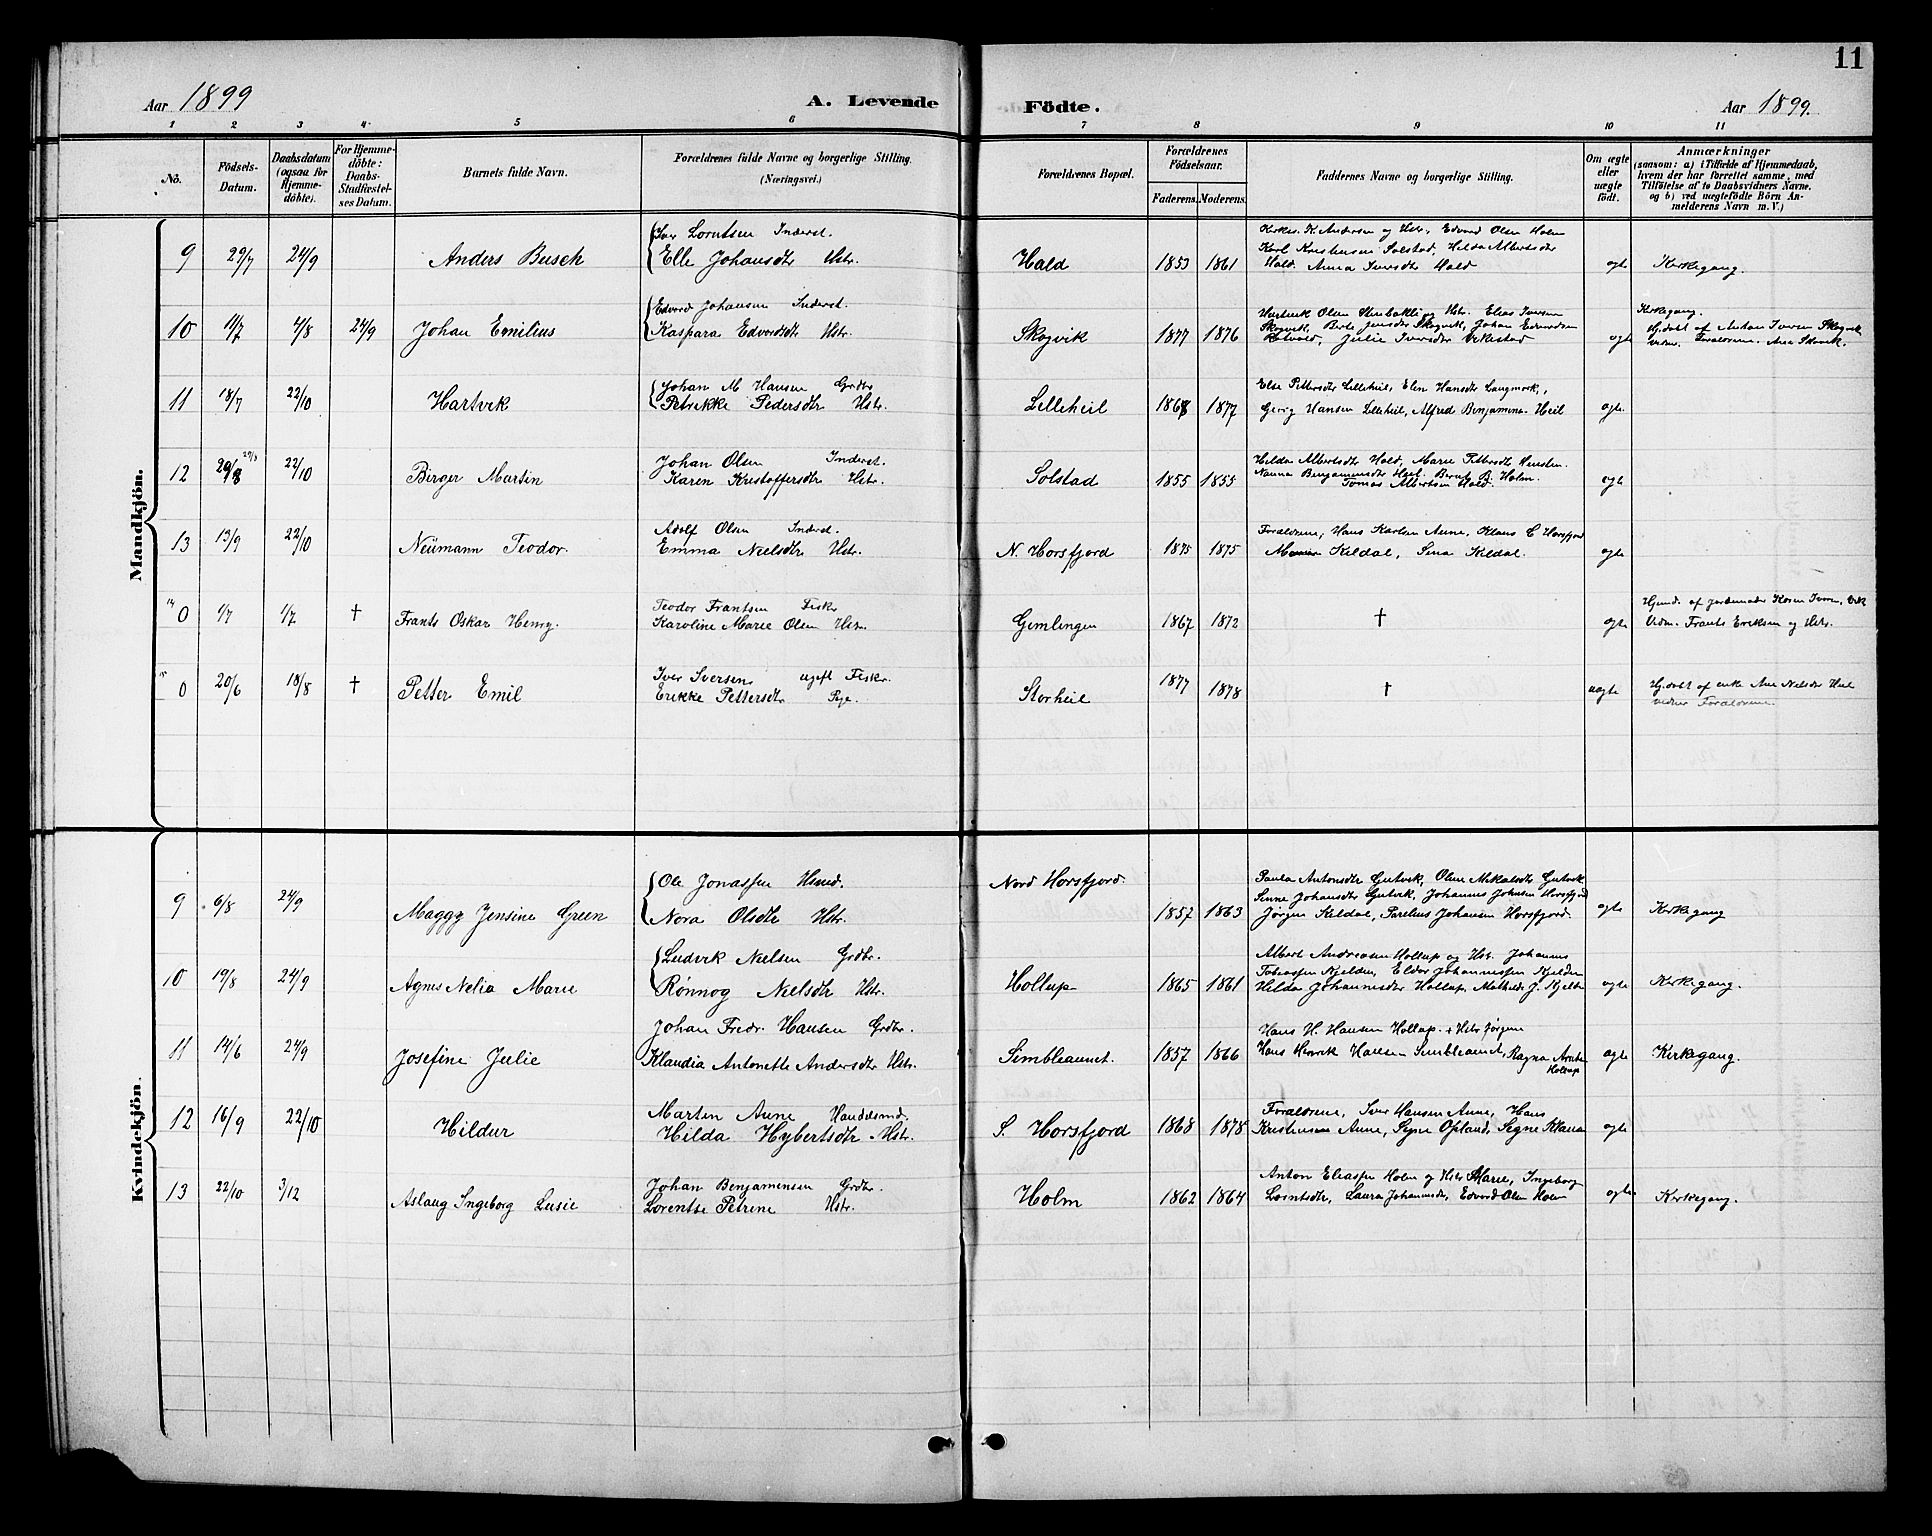 11
Aar 1899
A. Levende
Födte.
Aar 1899.
1 2 3 4 5 6 7 8 9 10 11
No.
Födsels-
Datum.
Daabsdatum
(ogsaa for
Hjemme-
döbte).
For Hjemme-
döbte:
Daabs-
Stadfæstel-
ses Datum.
Barnets fulde Navn.
Forældrenes fulde Navne og borgerlige Stilling.
(Næringsvei.)
Forældrenes Bopæl.
Forældrenes
Födselsaar.
Faderens. Moderens.
Faddernes Navne og borgerlige Stilling.
Om ægte
eller
uægte
födt.
Anmærkninger
(saasom: a) i Tilfælde af Hjemmedaab,
hvem der har forrettet samme, med
Tilföielse af to Daabsvidners Navne.
og b) ved uægtefödte Börn An-
melderens Navn m. V.)
Mandkjön.
9 29/7 24/9 Anders Busch
Iver Lorntsen Inderst.
Elle Johansdtr Hstr.
Hald 1853 1861
K. Andersen og Hstr, Edvard Olsen Holm
Karl Kristensen Solstad, Hilda Albertsdtr
Hald. Anna Iversdtr Hald
ægte Kirkegang.
10 11/7 4/8 24/9 Johan Emilius
Edvard Johansen Inderst.
Kaspara Edvardsdtr Hstr.
Skogvik 1877 1876
Hartvik Olsen Stenbakli og Hstr. Elias Iversen
Skogvik, Berte Jensdtr Skogvik, Johan Edvardsen
Julie Iversdtr Vikestad
ægte
Kirkegang.
Hj.døbt af Anton Iversen Skogvik
vidner. Forældrene. Ane Skogvik.
11 18/7 22/10 Hartvik
Johan M Hansen Grdbr
Petrikke Pedersdtr Hstr.
Lilleheil 1868 1877
Else Pettersdtr Lilleheil, Elen Hansdtr Langmork,
Georg Hansen Lilleheil, Alfred Benjamins. Heil
ægte.
12 29/8 22/10 Birger Martin
Johan Olsen Inderst.
Karen Kristoffersdtr Hstr.
Solstad 1855 1855
Hilda Albertsdtr Hald, Marie Pettersdtr
Nanna Benjaminsdtr Heil. Bernt B. Holm.
Tomas Albertsen Hald.
ægte
13 13/9 22/10 Neumann Teodor.
Adolf Olsen Inderst.
Emma Nielsdtr Hstr.
N. Horsfjord 1875 1875
Forældrene, Hans Karlsen Aune, Klaus C Horsfjord
Keldal, Sina Keldal.
ægte
14 0 1/7 1/7 † Frants Oskar Henry.
Teodor Frantsen Fisker
Karoline Marie Olsen Hstr.
Gimlingen 1867 1872
†
ægte
Hjemd. af Jordemoder Karen Iversen, Vik
Vidn. Frants Eriksen og Hstr.
15 0 20/6 18/8 † Petter Emil
Iver Iversen ugift Fisker.
Erikke Pettersdtr Pige.
Storheil 1877 1878
†
uægte
Hj.døbt af enke Ane Nielsdtr Heil
vidner Forældrene.
Kvindekjön.
9 6/8 24/9 Maggy Jensine Green
Ole Jonassen Hsmd.
Nora Olsdtr Hstr.
Nord Horsfjord.
1857 1863
Paula Antonsdtr Gutvik, Oline Mikalsdtr Gutvik
Sinne Johansdtr Gutvik, Johannes Johnsen Horsfjord
Jørgen Keldal, Parelius Johansen Horsfjord.
ægte Kirkegang
10 19/8 24/9 Agnes Nelia Marie
Ludvik Nielsen Grdbr.
Rønnog Nielsdtr Hstr.
Hollup 1865 1861
Albert Andreasen Hollup og Hstr. Johannes
Tobiassen Kjelden, Eldor Johannessen Kjelden
Hilda Johannesdtr Hollup, Mathilde J. Kjelden
ægte Kirkegang.
11 14/6 24/9 Josefine Julie
Johan Fredr. Hansen Grdbr.
Klaudia Antonette Andersdtr Hstr.
Simbleaunet. 1857 1866
Hans H. Hansen Hollup. + Hstr Jørgine
Hans Henrik Hansen Simbleaunet, Ragna
Hollup
ægte Kirkegang.
12 16/9 22/10 Hildur
Martin Aune Handelsmd.
Hilda Hybertsdtr Hstr.
S. Horsfjord 1868 1878
Forældrene, Iver Hansen Aune, Hans
Kristensen Aune, Signe Opland, Signe
ægte
13 22/10 3/12 Aslaug Ingeborg Lusie
Johan Benjaminsen Grdbr.
Lorentse Petrine Hstr.
Holm 1862 1864
Anton Eliassen Holm og Hstr Marie, Ingeborg
Lorntsdtr, Laura Johannsdtr, Edvard Olsen Holm
ægte Kirkegang.